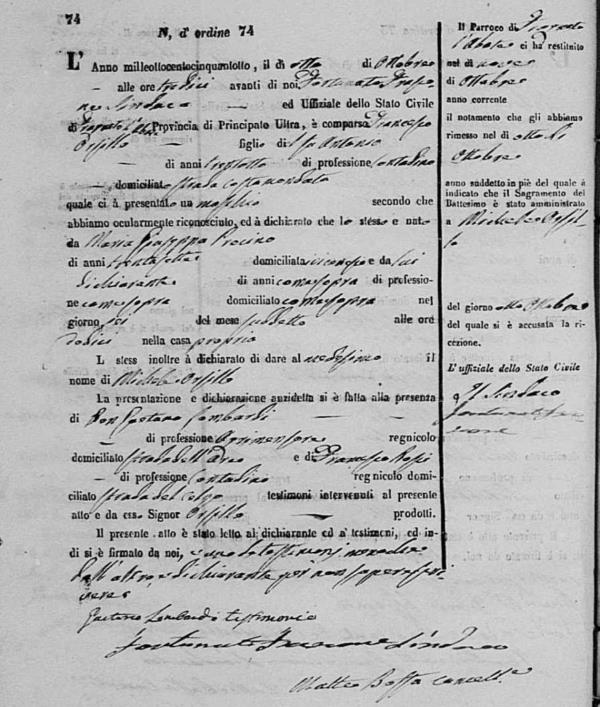 74
N. d' ordine 74
L' Anno milleottocentocinquantotto, il dì otto di Ottobre
alle ore tredici avanti di noi Fortunato
Sindaco ed Uffiziale dello Stato Civile
di Provincia di Principato Ultra, è comparso Francesco
Orsillo figlio di fu Antonio
di anni trentotto di professione contadino
domiciliato strada Costamondato
quale ci à presentato un maschio secondo che
abbiamo ocularmente riconosciuto, ed à dichiarato che lo stesso è nato
da Maria Giuseppa
di anni trentasette domiciliata ivi con esso e da lui
dichiarante di anni come sopra di professio-
ne come sopra domiciliato come sopra nel
giorno sei del mese suddetto alle ore
dodici nella casa propria
L stess inoltre à dichiarato di dare al medesimo il
nome di Michele Orsillo
La presentazione e dichiarazione anzidetta si è fatta alla presenza
di Don Gaetano Lombardi
di professione Agrimensore regnicolo
domiciliato strada e di Francesco Rossi
di professione Contadino regnicolo domi-
ciliato strada del testimoni intervenuti al presente
atto e da esso Signor Orsillo prodotti.
Il presente atto è stato letto al dichiarante ed a' testimoni, ed in-
di si è firmato da noi, e uno de testimoni, non che
dall'altro e dichiarante per non sapere scri
vere
Gaetano Lombardi testimonio
Fortunato Sindaco
Matteo Bossa Cancell.e
Il Parroco di
l'Abate ci ha restituito
nel dì nove
di Ottobre
anno corrente
il notamento che gli abbiamo
rimesso nel dì otto di
Ottobre
anno suddetto in piè del quale à
indicato che il Sagramento del
Battesimo è stato amministrato
a Michele Orsil-
lo
del giorno otto Ottobre
del quale si è accusata la ri-
cezione.
L'uffiziale dello Stato Civile
Il Sindaco